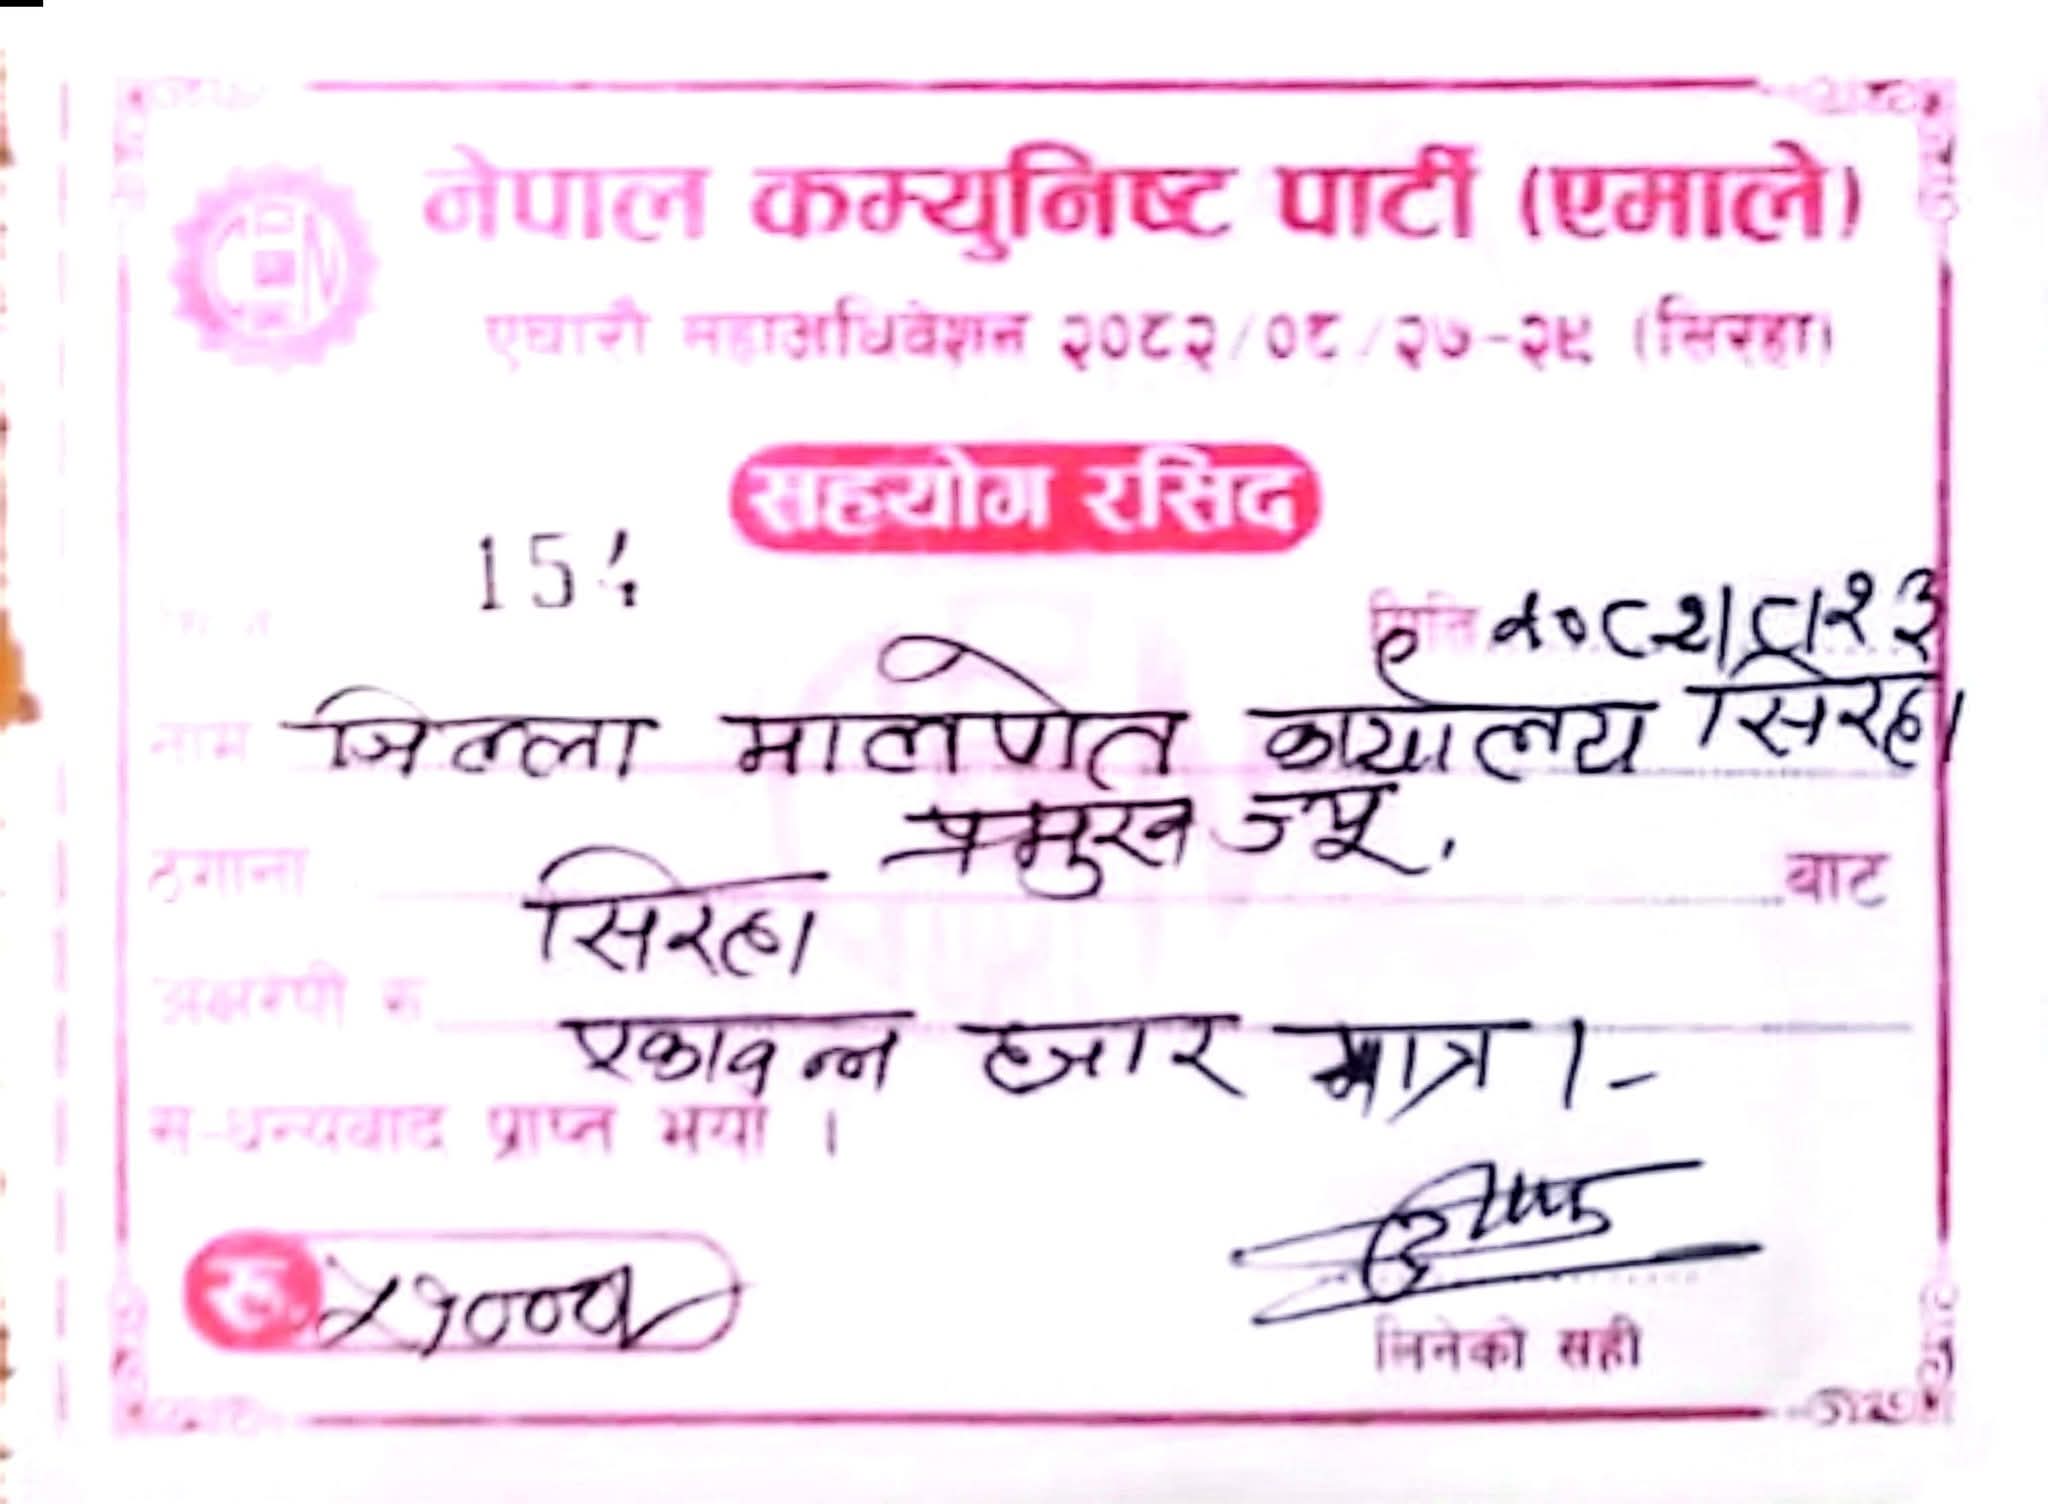 नेपाल कम्युनिष्ट पार्टी (एमाले)
एघारौ महाअधिवेशन २०८२/०८/२७-२९ (सिरहा)
सहयोग रसिद
15
मिति २०८२।८।२३
नाम जिल्ला मालपोत कार्यालय सिरहा
प्रमुख ज्यू.
ठेगाना सिरहा वाट
अक्षरुपी रु एकावन्न हजार मात्र ।-
स-धन्यवाद प्राप्त भयो ।
रु. ५१०००
लिनेको सही